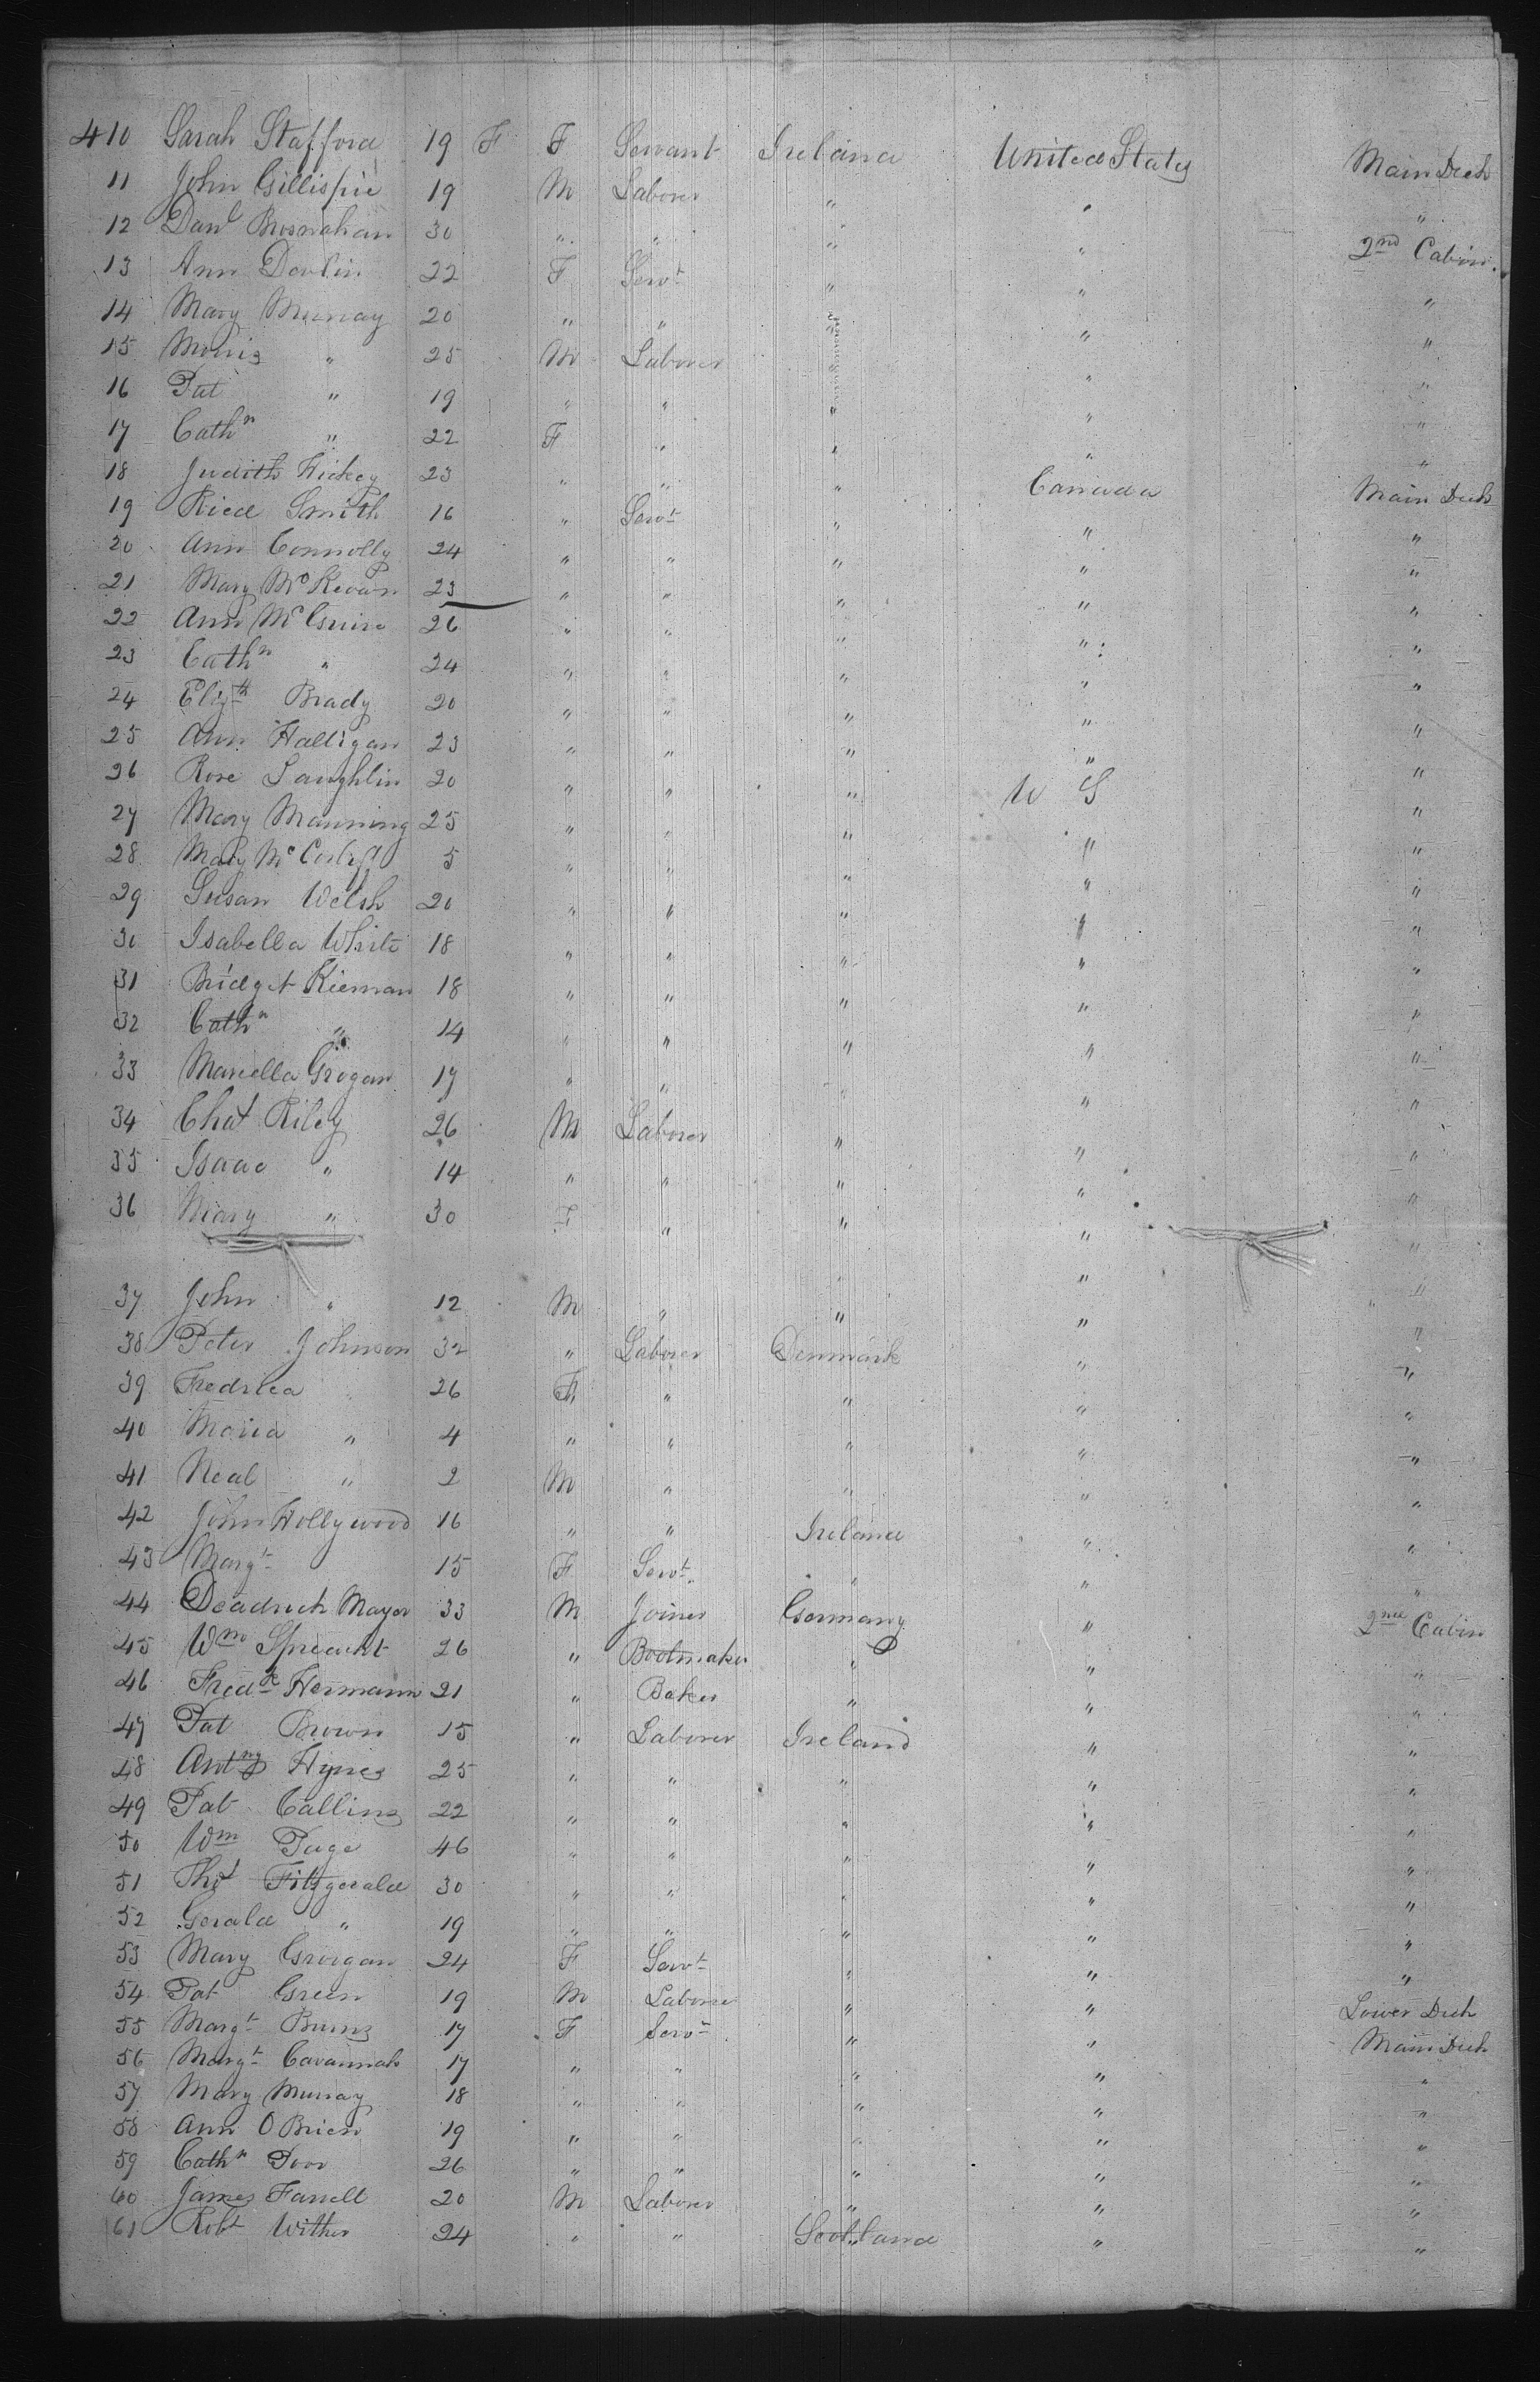 410 Sarah Stafford 19 F F Servant Ireland United States Main Deck
11 John Gillispie 19 M Laborer " " "
12 Danl Brosnahan 30 " " " " 2nd Cabin
13 Ann Devlin 22 F Servt " " "
14 Mary Murray 20 " " " " "
15 Morris " 25 M Laborer " " "
16 Pat " 19 " " " " "
17 Cathn " 22 F " " " "
18 Judith Hickey 23 " " " Canada Main Deck
19 Smith 16 " Servt " " "
20 Ann Connolly 24 " " " " "
21 Mary McKeown 23 " " " " "
22 Ann McGuire 26 " " " " "
23 Cathn " 24 " " " " "
24 Elizth Brady 20 " " " " "
25 Ann Halligan 23 " " " " "
26 Rose Laughlin 20 " " " U S "
27 Mary Manning 25 " " " " "
28 Mary 5 " " " " "
29 Susan Welsh 20 " " " " "
30 Isabella White 18 " " " " "
31 Bridget Kiernan 18 " " " " "
32 Cathn " 14 " " " " "
33 Mariella Grogan 17 " " " " "
34 Chas Riley 26 M Laborer " " "
35 Isaac " 14 " " " " "
36 Mary " 30 F " " " "
37 John " 12 M " " " "
38 Peter Johnson 32 " Laborer Denmark " "
39 Fredrica 26 F " " " "
40 Maria " 4 " " " " "
41 Neal " 2 M " " " "
42 John Hollywood 16 " " Ireland " "
43 Margt 15 F Servt " " "
44 Deadrich Mayer 33 M Joiner Germany " 2nd Cabin
45 Wm 26 " Bootmaker " " "
46 Fredk Hermann 21 " Baker " " "
47 Pat Brown 15 " Laborer Ireland " "
48 Antny Hynes 25 " " " " "
49 Pat Callins 22 " " " " "
50 Wm Page 46 " " " " "
51 Thos Fitzgerald 30 " " " " "
52 Gerald " 19 " " " " "
53 Mary Groigan 24 F Servt " " "
54 Pat Green 19 M Laborer " " Lower Deck
55 Margt Burns 17 F Servt " " Main Deck
56 Margt Cavannah 17 " " " " "
57 Mary Murray 18 " " " " "
58 Ann O Brien 19 " " " " "
59 Cathn Poor 26 " " " " "
60 James Farrell 20 M Laborer " " "
61 Robt Wither 24 " " Scotland " "